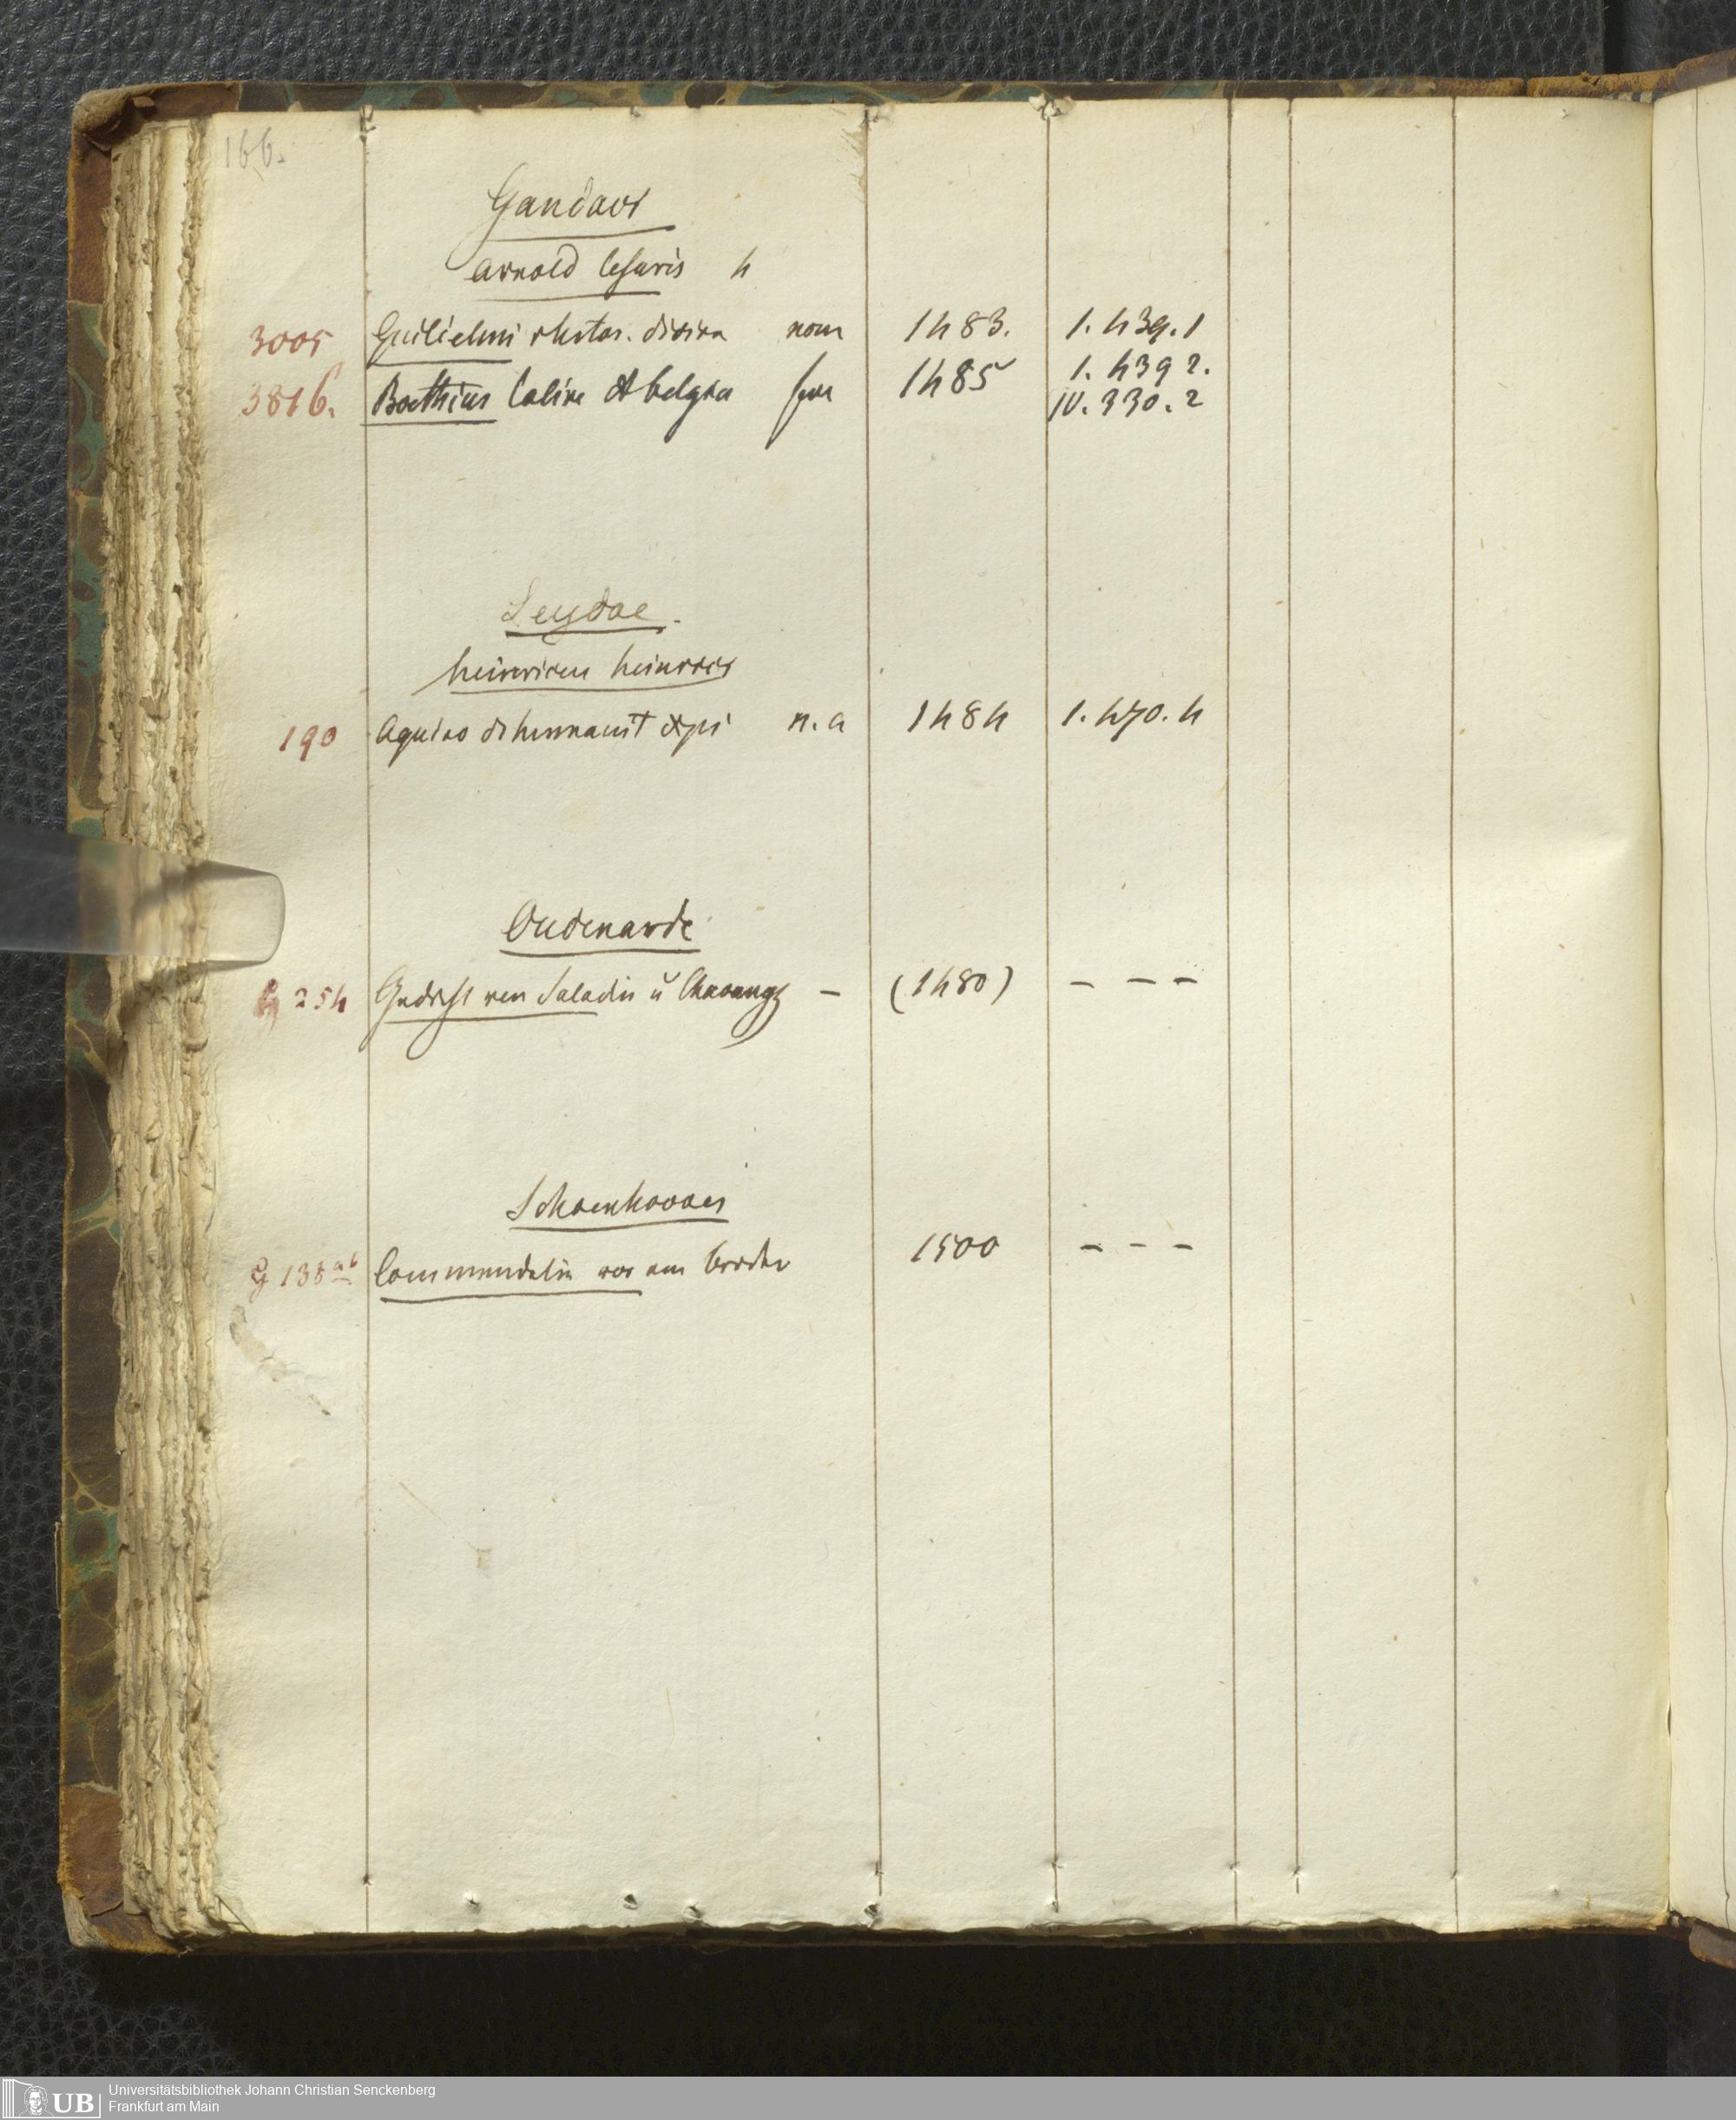 166.
Gandavi
Arnold Cesaris h
3005 Guilielmi rhetor. divina nom 1483. 1. 439. 1
3816. Boethius latine & belgica 1485 1. 439 2.
IV. 330. 2
Leydae.
heinricus heinrici
190 Aquino de humanit xpi n. a 1484 1. 470. 4
Oudenarde
G 254 Gedicht von Saladin u – (1480) – – –
Schoenhovae
G 138 ab Commendatio vor 1500 – – –
UB Universitätsbibliothek Johann Christian Senckenberg
Frankfurt am Main